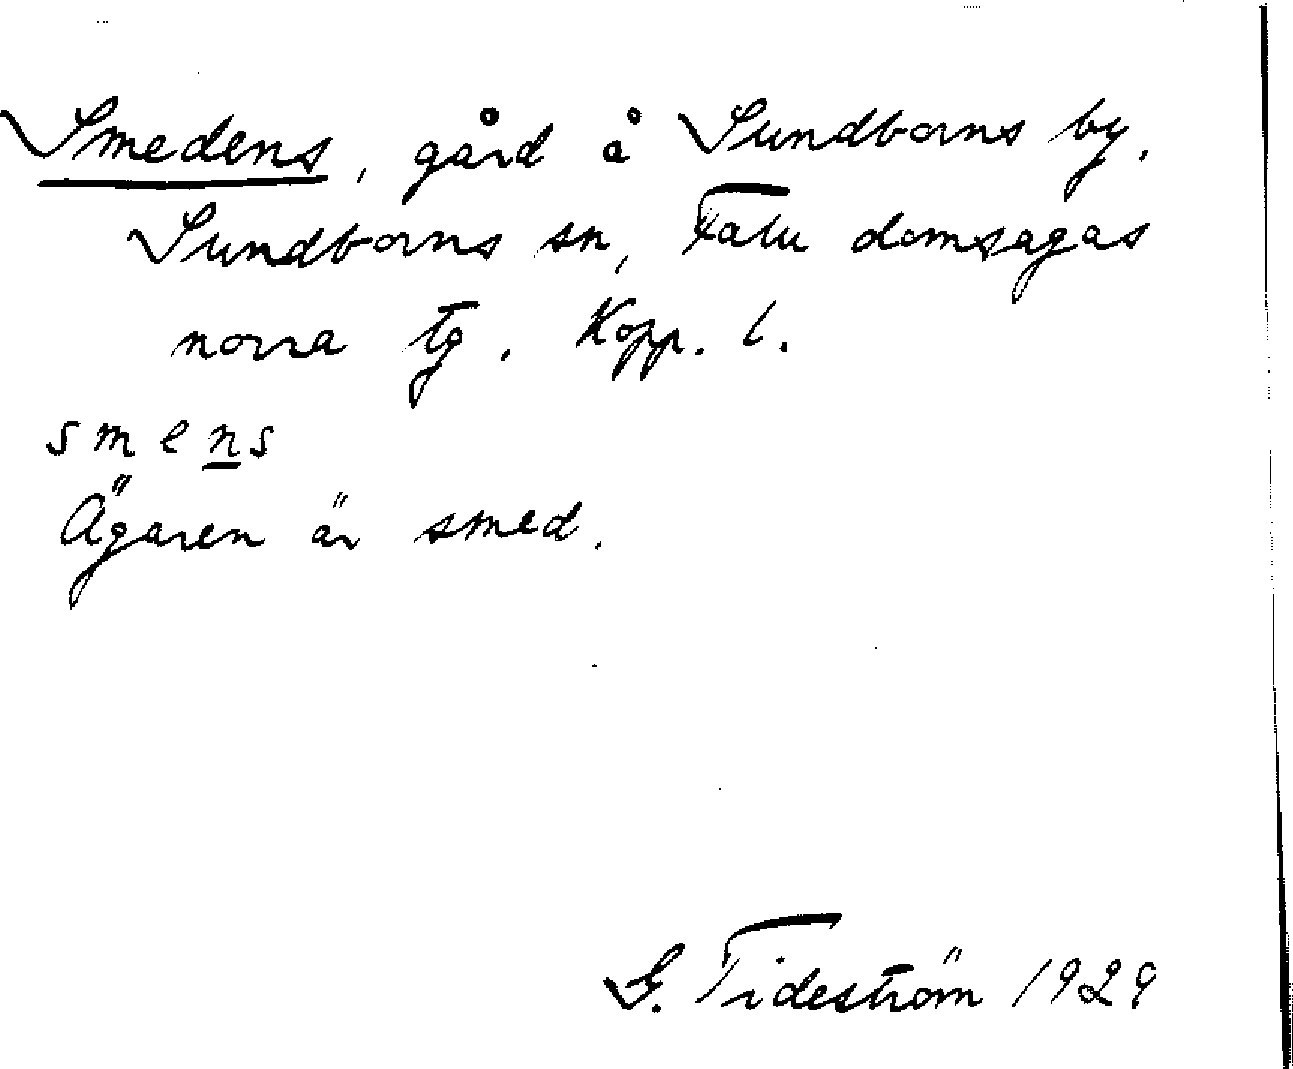 Smedens, gård å Sundborns by,
Sundborns sn, Falu domsagas
norra tg, Kopp. l.
smens
Ägaren är smed.
G. Tideström 1929